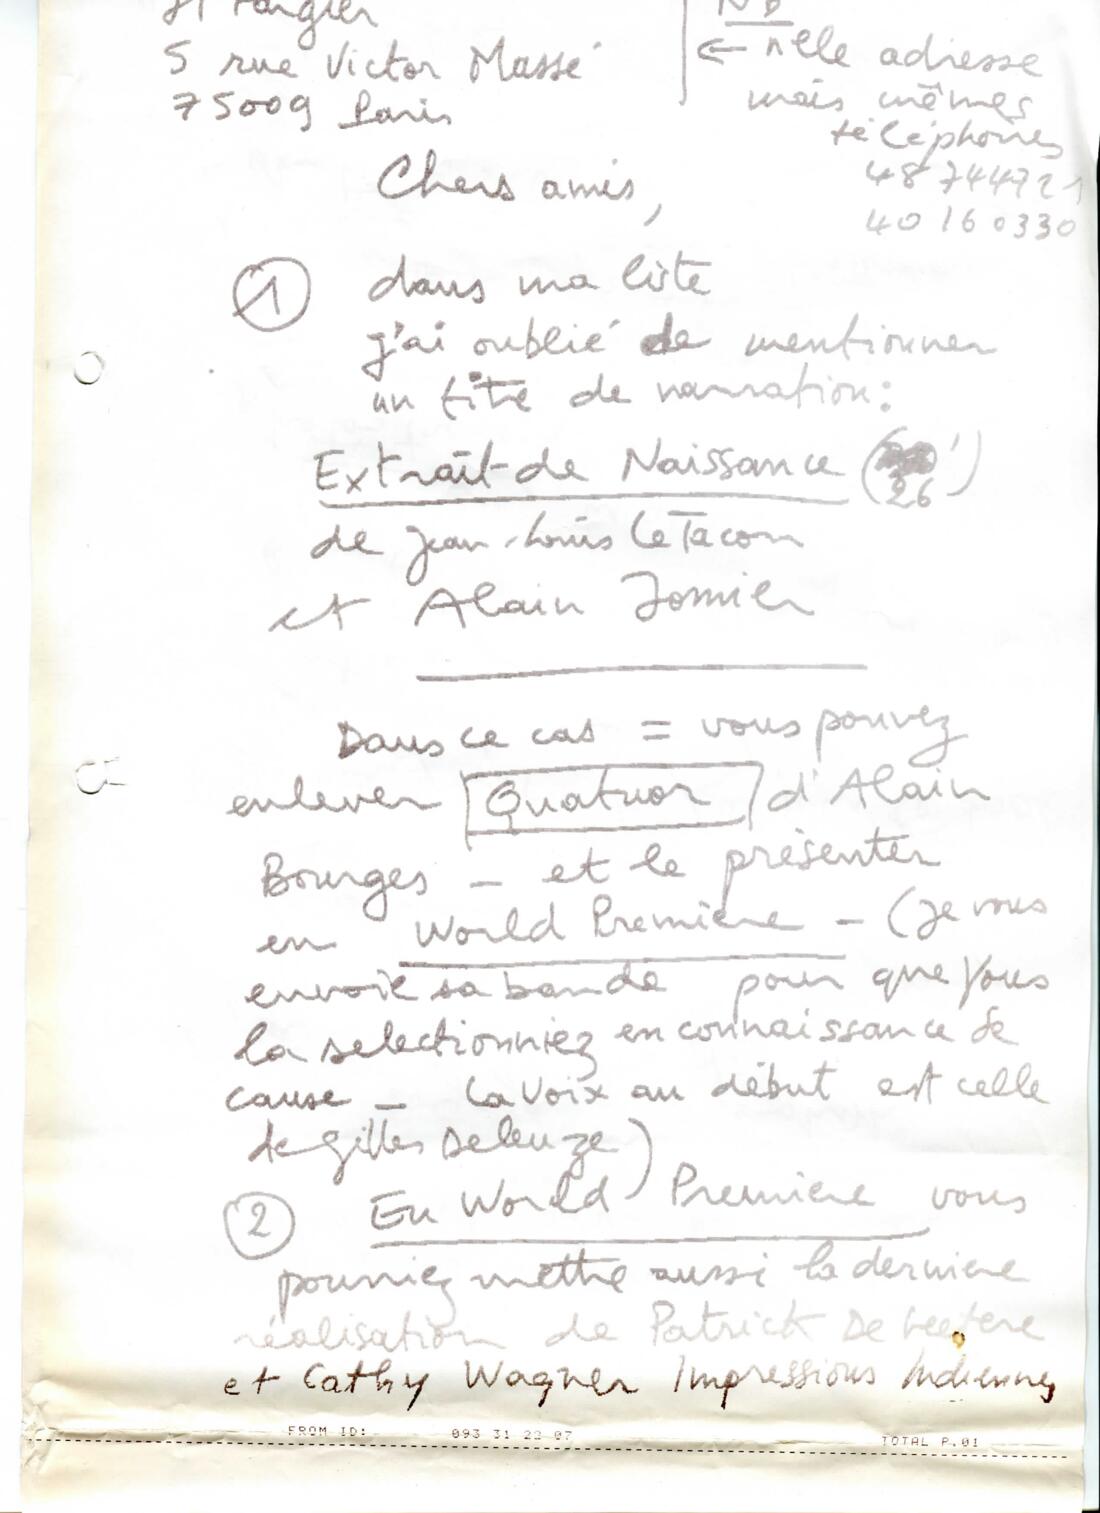 JP Fargier
5 rue Victor Massé
75009 Paris
NB
← nlle adresse
mais mêmes
téléphones
48 744721
40 16 0330
Chers amis,
1 dans ma liste
j'ai oublié de mentionner
un titre de narration:
Extrait de Naissance (26')
de Jean-Louis Le Tacon
et Alain Jomier
Dans ce cas = vous pouvez
enlever Quatuor d'Alain
Bourges – et le présenter
en World Premiere – (je vous
envoie sa bande pour que vous
la selectionniez en connaissance de
cause – La voix au début est celle
de Gilles Deleuze)
2 En World Premiere vous
pourriez mettre aussi la derniere
réalisation de Patrick De Geetere
et Cathy Wagner Impressions Indiennes
FROM ID: 093 31 22 07 TOTAL P.01